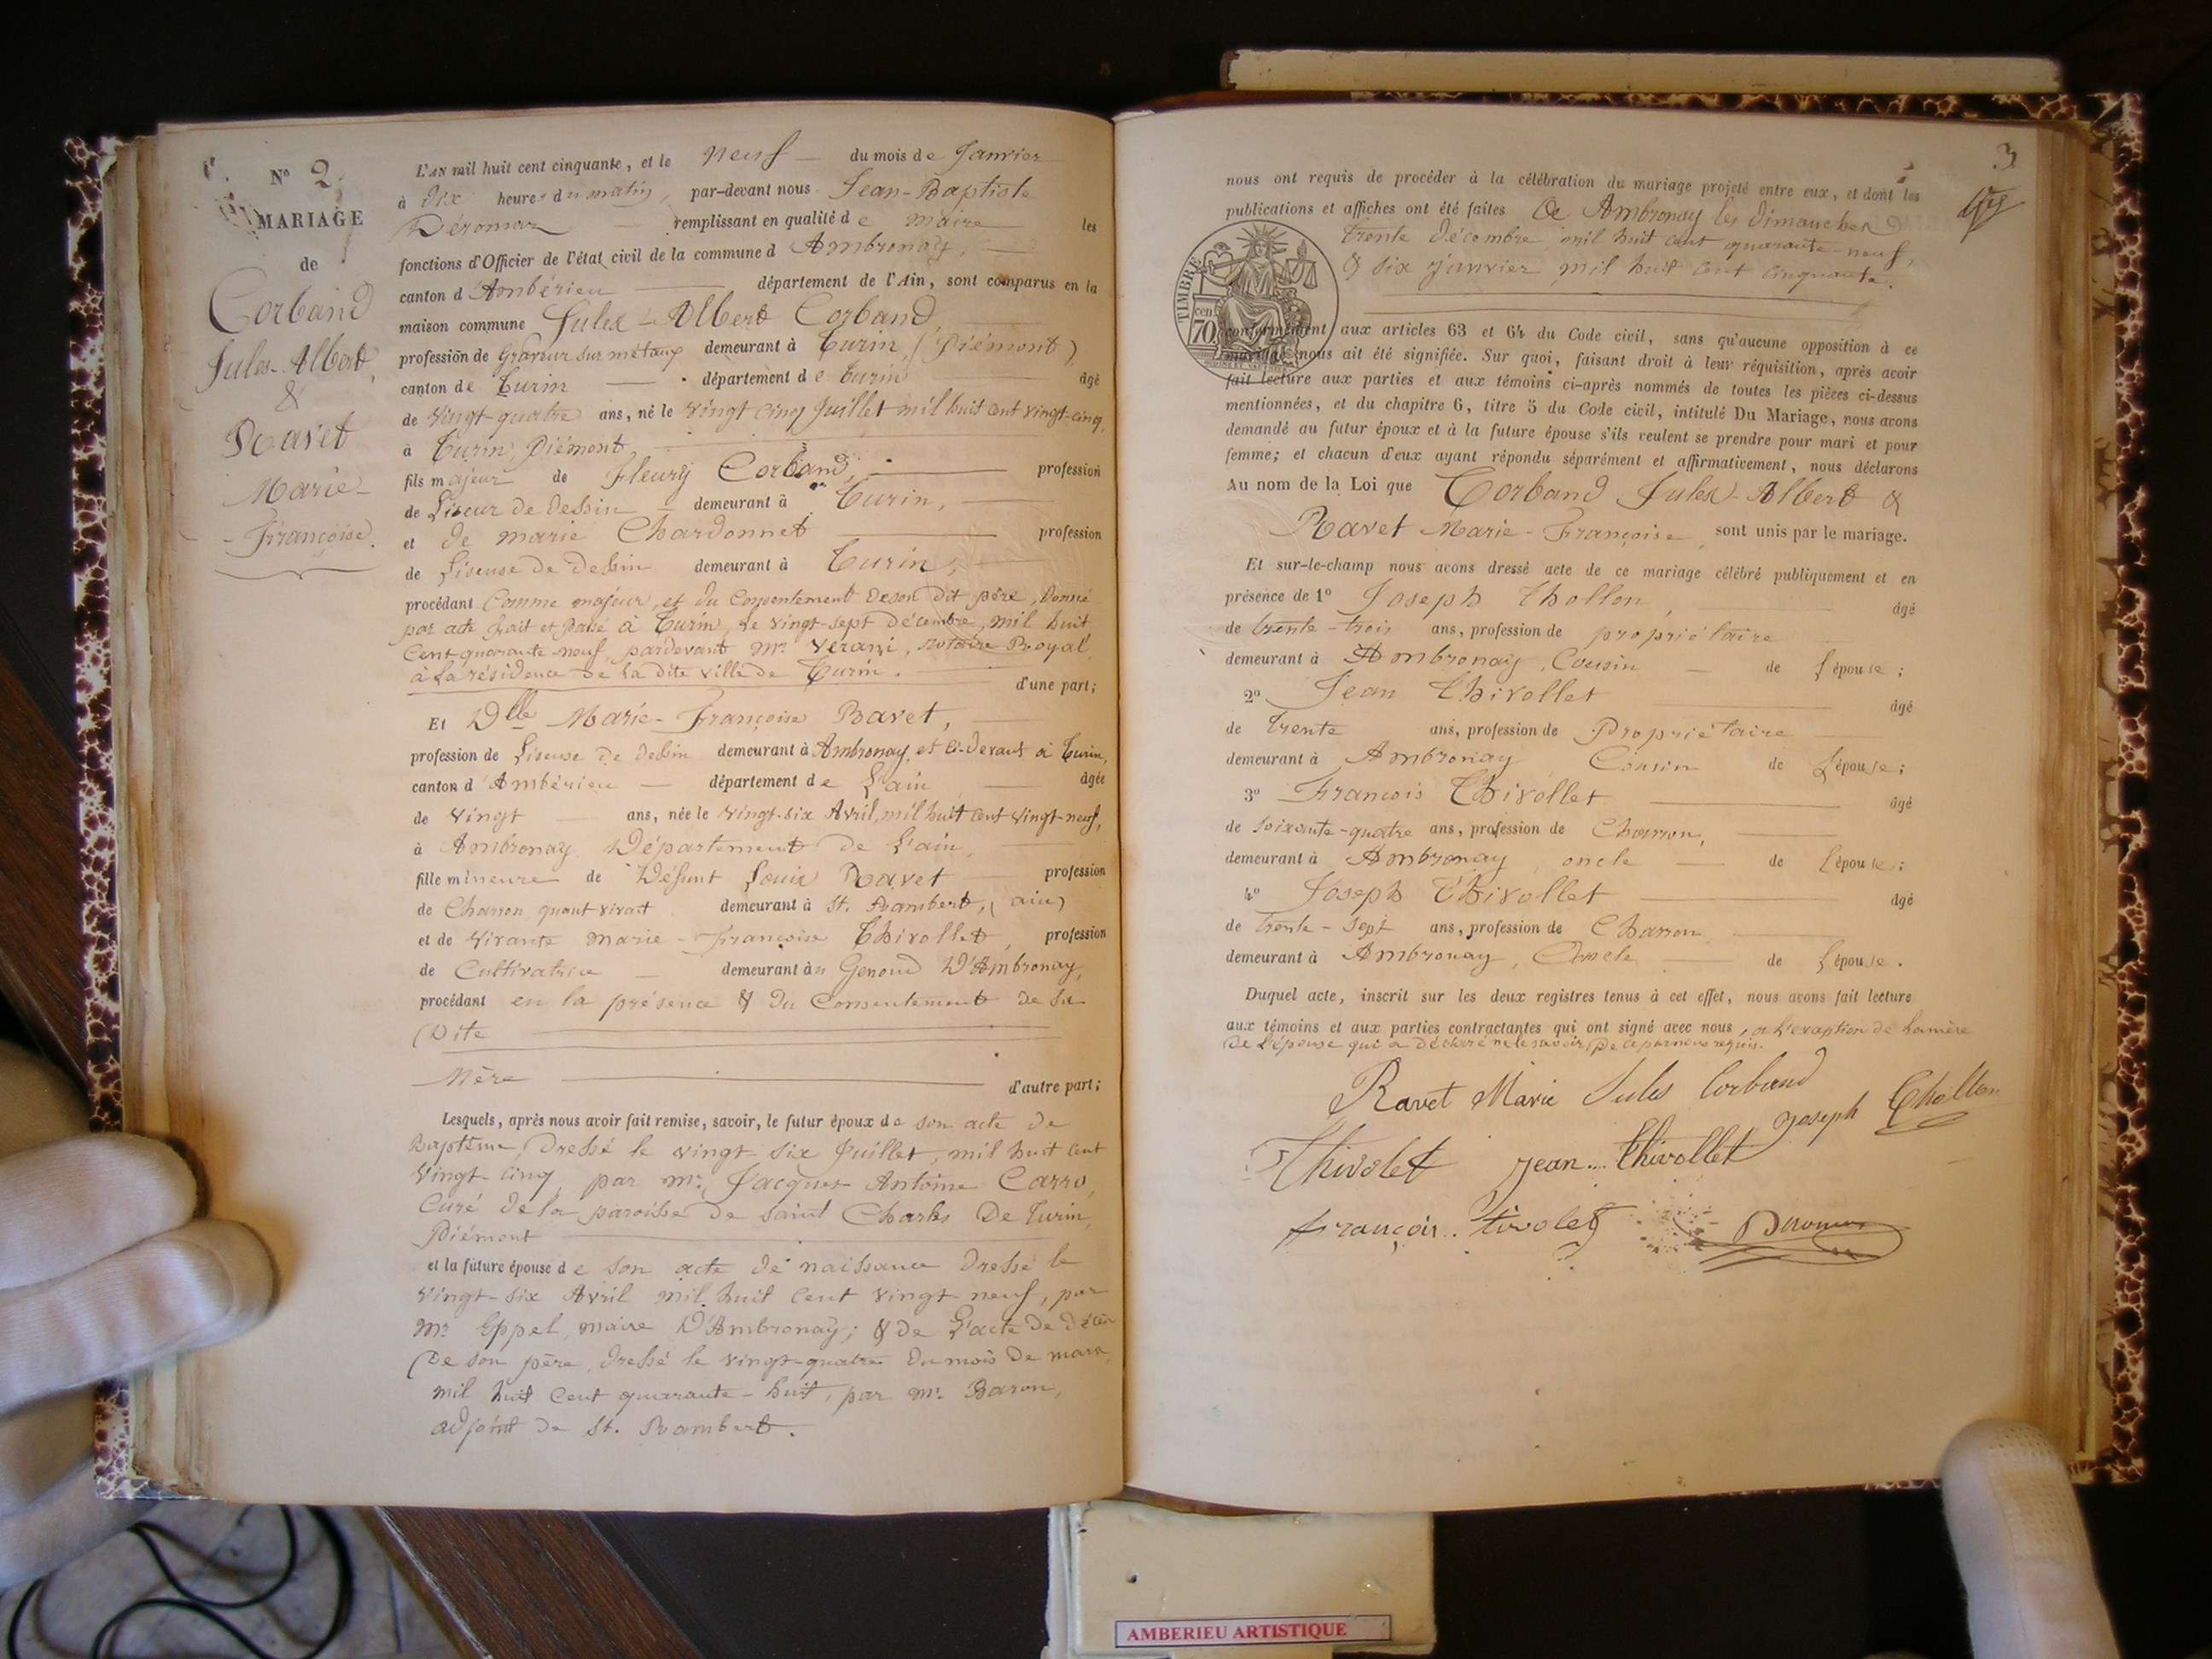 N° 2.
MARIAGE
de
Corband
Jules-Albert,
&
Ravet
Marie-
-Françoise.
L'AN mil huit cent cinquante, et le neuf du mois de Janvier
à dix heures du matin, par-devant nous Jean-Baptiste
remplissant en qualité de maire les
fonctions d'Officier de l'état civil de la commune d'Ambronay,
canton d'Ambérieu département de l'Ain, sont comparus en la
maison commune Jules-Albert Corband,
profession de Graveur sur métaux demeurant à Turin, (Piémont)
canton de Turin département de turin âgé
de vingt-quatre ans, né le vingt cinq Juillet mil huit cent vingt-cinq,
à Turin, Piémont,
fils majeur de Fleury Corband, profession
de Liseur de dessin demeurant à Turin,
et de marie Chardonnet profession
de Liseuse de dessin demeurant à Turin,
procédant Comme majeur, et du Consentement de son dit père, donné
par acte fait et passé à Turin, le vingt-sept décembre, mil huit
Cent quarante-neuf, pardevant mr. Verani, notaire Royal
à la résidence de la dite ville de Turin.
d'une part;
Et Dlle Marie-Françoise Ravet,
profession de Liseuse de dessin demeurant à Ambronay, et ci-devant à Turin,
canton d'Ambérieu département de L'ain âgée
de vingt ans, née le vingt-six Avril, mil huit cent vingt-neuf,
à Ambronay Département de L'ain,
fille mineure de Défunt Louis Ravet profession
de Charron, quant vivait demeurant à St. Rambert, (ain)
et de Vivante marie-Françoise Thivollet, profession
de Cultivatrice demeurant au Genoud D'Ambronay,
procédant en la présence & du Consentement de sa
Dite
Mère
d'autre part;
Lesquels, après nous avoir fait remise, savoir, le futur époux de son acte de
Baptême, Dressé le vingt-six Juillet, mil huit cent
Vingt-cinq, par mr. Jacques Antoine Carro,
Curé de la paroisse de Saint Charles De Turin,
Piémont
et la future épouse de son acte de naissance Dressé le
vingt-six Avril mil huit cent vingt-neuf, par
mr. Eppel, maire D'Ambronay; & de L'acte de décès
De son père, dressé le vingt-quatre du mois de mars,
mil huit cent quarante-huit, par mr. Baron,
adjoint de St. Rambert.
3
nous ont requis de procéder à la célébration du mariage projeté entre eux, et dont les
publications et affiches ont été faites à Ambronay les dimanches
trente décembre, mil huit cent quarante-neuf,
& six janvier mil huit cent cinquante.
TIMBRE
70 cent
conformément aux articles 63 et 64 du Code civil, sans qu'aucune opposition à ce
mariage nous ait été signifiée. Sur quoi, faisant droit à leur réquisition, après avoir
fait lecture aux parties et aux témoins ci-après nommés de toutes les pièces ci-dessus
mentionnées, et du chapitre 6, titre 5 du Code civil, intitulé Du Mariage, nous avons
demandé au futur époux et à la future épouse s'ils veulent se prendre pour mari et pour
femme; et chacun d'eux ayant répondu séparément et affirmativement, nous déclarons
Au nom de la Loi que Corband Jules-Albert &
Ravet Marie-Françoise, sont unis par le mariage.
Et sur-le-champ nous avons dressé acte de ce mariage célébré publiquement et en
présence de 1° Joseph Thollon, âgé
de trente-trois ans, profession de propriétaire
demeurant à Ambronay, Cousin de L'épouse;
2° Jean Thivollet âgé
de trente ans, profession de Propriétaire
demeurant à Ambronay Cousin de L'épouse;
3° Francois Thivollet âgé
de soixante-quatre ans, profession de Charron,
demeurant à Ambronay oncle de L'épouse;
4° Joseph Thivollet âgé
de trente-sept ans, profession de Charron,
demeurant à Ambronay, Oncle de L'épouse.
Duquel acte, inscrit sur les deux registres tenus à cet effet, nous avons fait lecture
aux témoins et aux parties contractantes qui ont signé avec nous, à l'exception de la mère
De L'épouse qui a déclaré ne le savoir, de ce par nous requis.
Ravet Marie Jules Corband
Joseph Thollon
Thivolet Jean Thivollet
françois tivolet
AMBERIEU ARTISTIQUE